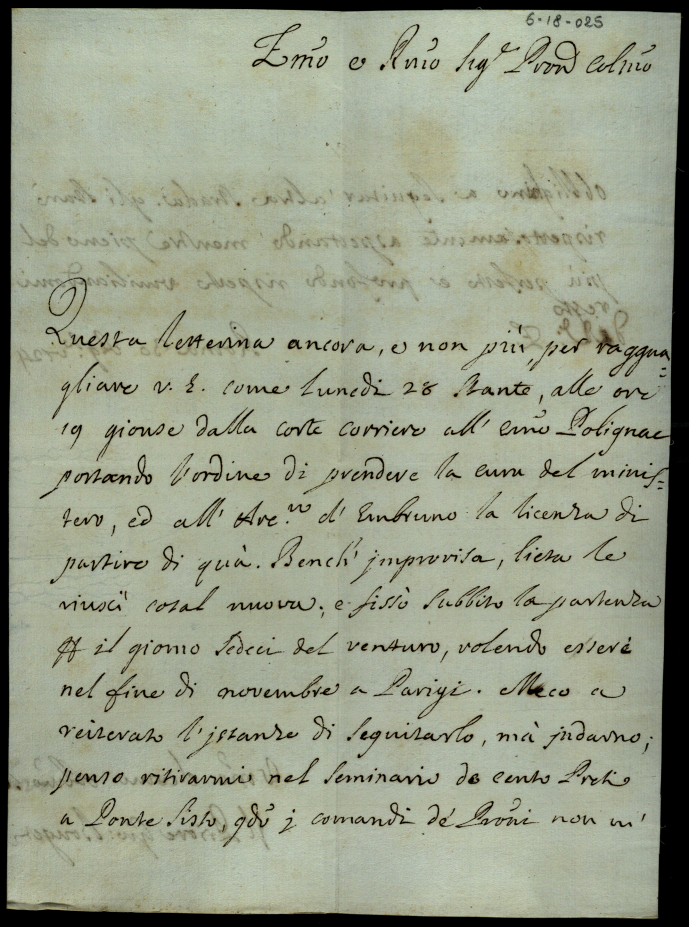 6-18-025
Emo e Rmo Sigr Pron Colmo
Questa letterina ancora, e non più, per raggua=
gliare V. E. come Lunedi 28 stante, alle ore
19 gionse dalla corte corriere all' emo Polignac
portando l'ordine di prendere la cura del minis=
tero, ed all' Arc.vo d' Embruno la licenza di
partire di quà. Bench' improvisa, lieta le
riuscì cotal nuova; e fissò subbito la partenza
il giorno sedeci del venturo, volendo essere
nel fine di novembre a Parigi. Meco a
reiterato l'jstanze di seguitarlo, mà jndarno;
penso ritirarmi nel seminario de cento Preti
a Ponte Sisto, qdo j comandi de' Proni non m'